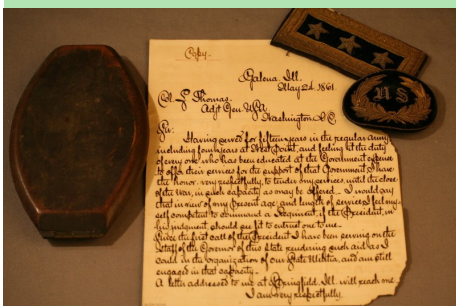 Copy.
Galena, Ill.
May 24, 1861
Col. L. Thomas.
Adjt Gen. U.S.A.
Washington D.C.
Sir:
Having served for fifteen years in the regular army,
including four years at West Point, and feeling it the duty
of every one who has been educated at the Government expense
to offer their services for the support of that Government, I have
the honor, very respectfully, to tender my services, until the close
of the War, in such capacity as may be offered. I would say
that in view of my present age, and length of service, I feel my-
self competent to command a Regiment, if the President, in
his judgment, should see fit to entrust one to me.
Since the first call of the President I have been serving on the
Staff of the Governor of this State rendering such aid as I
could in the organization of our State Militia, and am still
engaged in that capacity.
A letter addressed to me at Springfield, Ill. will reach me.
I am very respectfully
U S